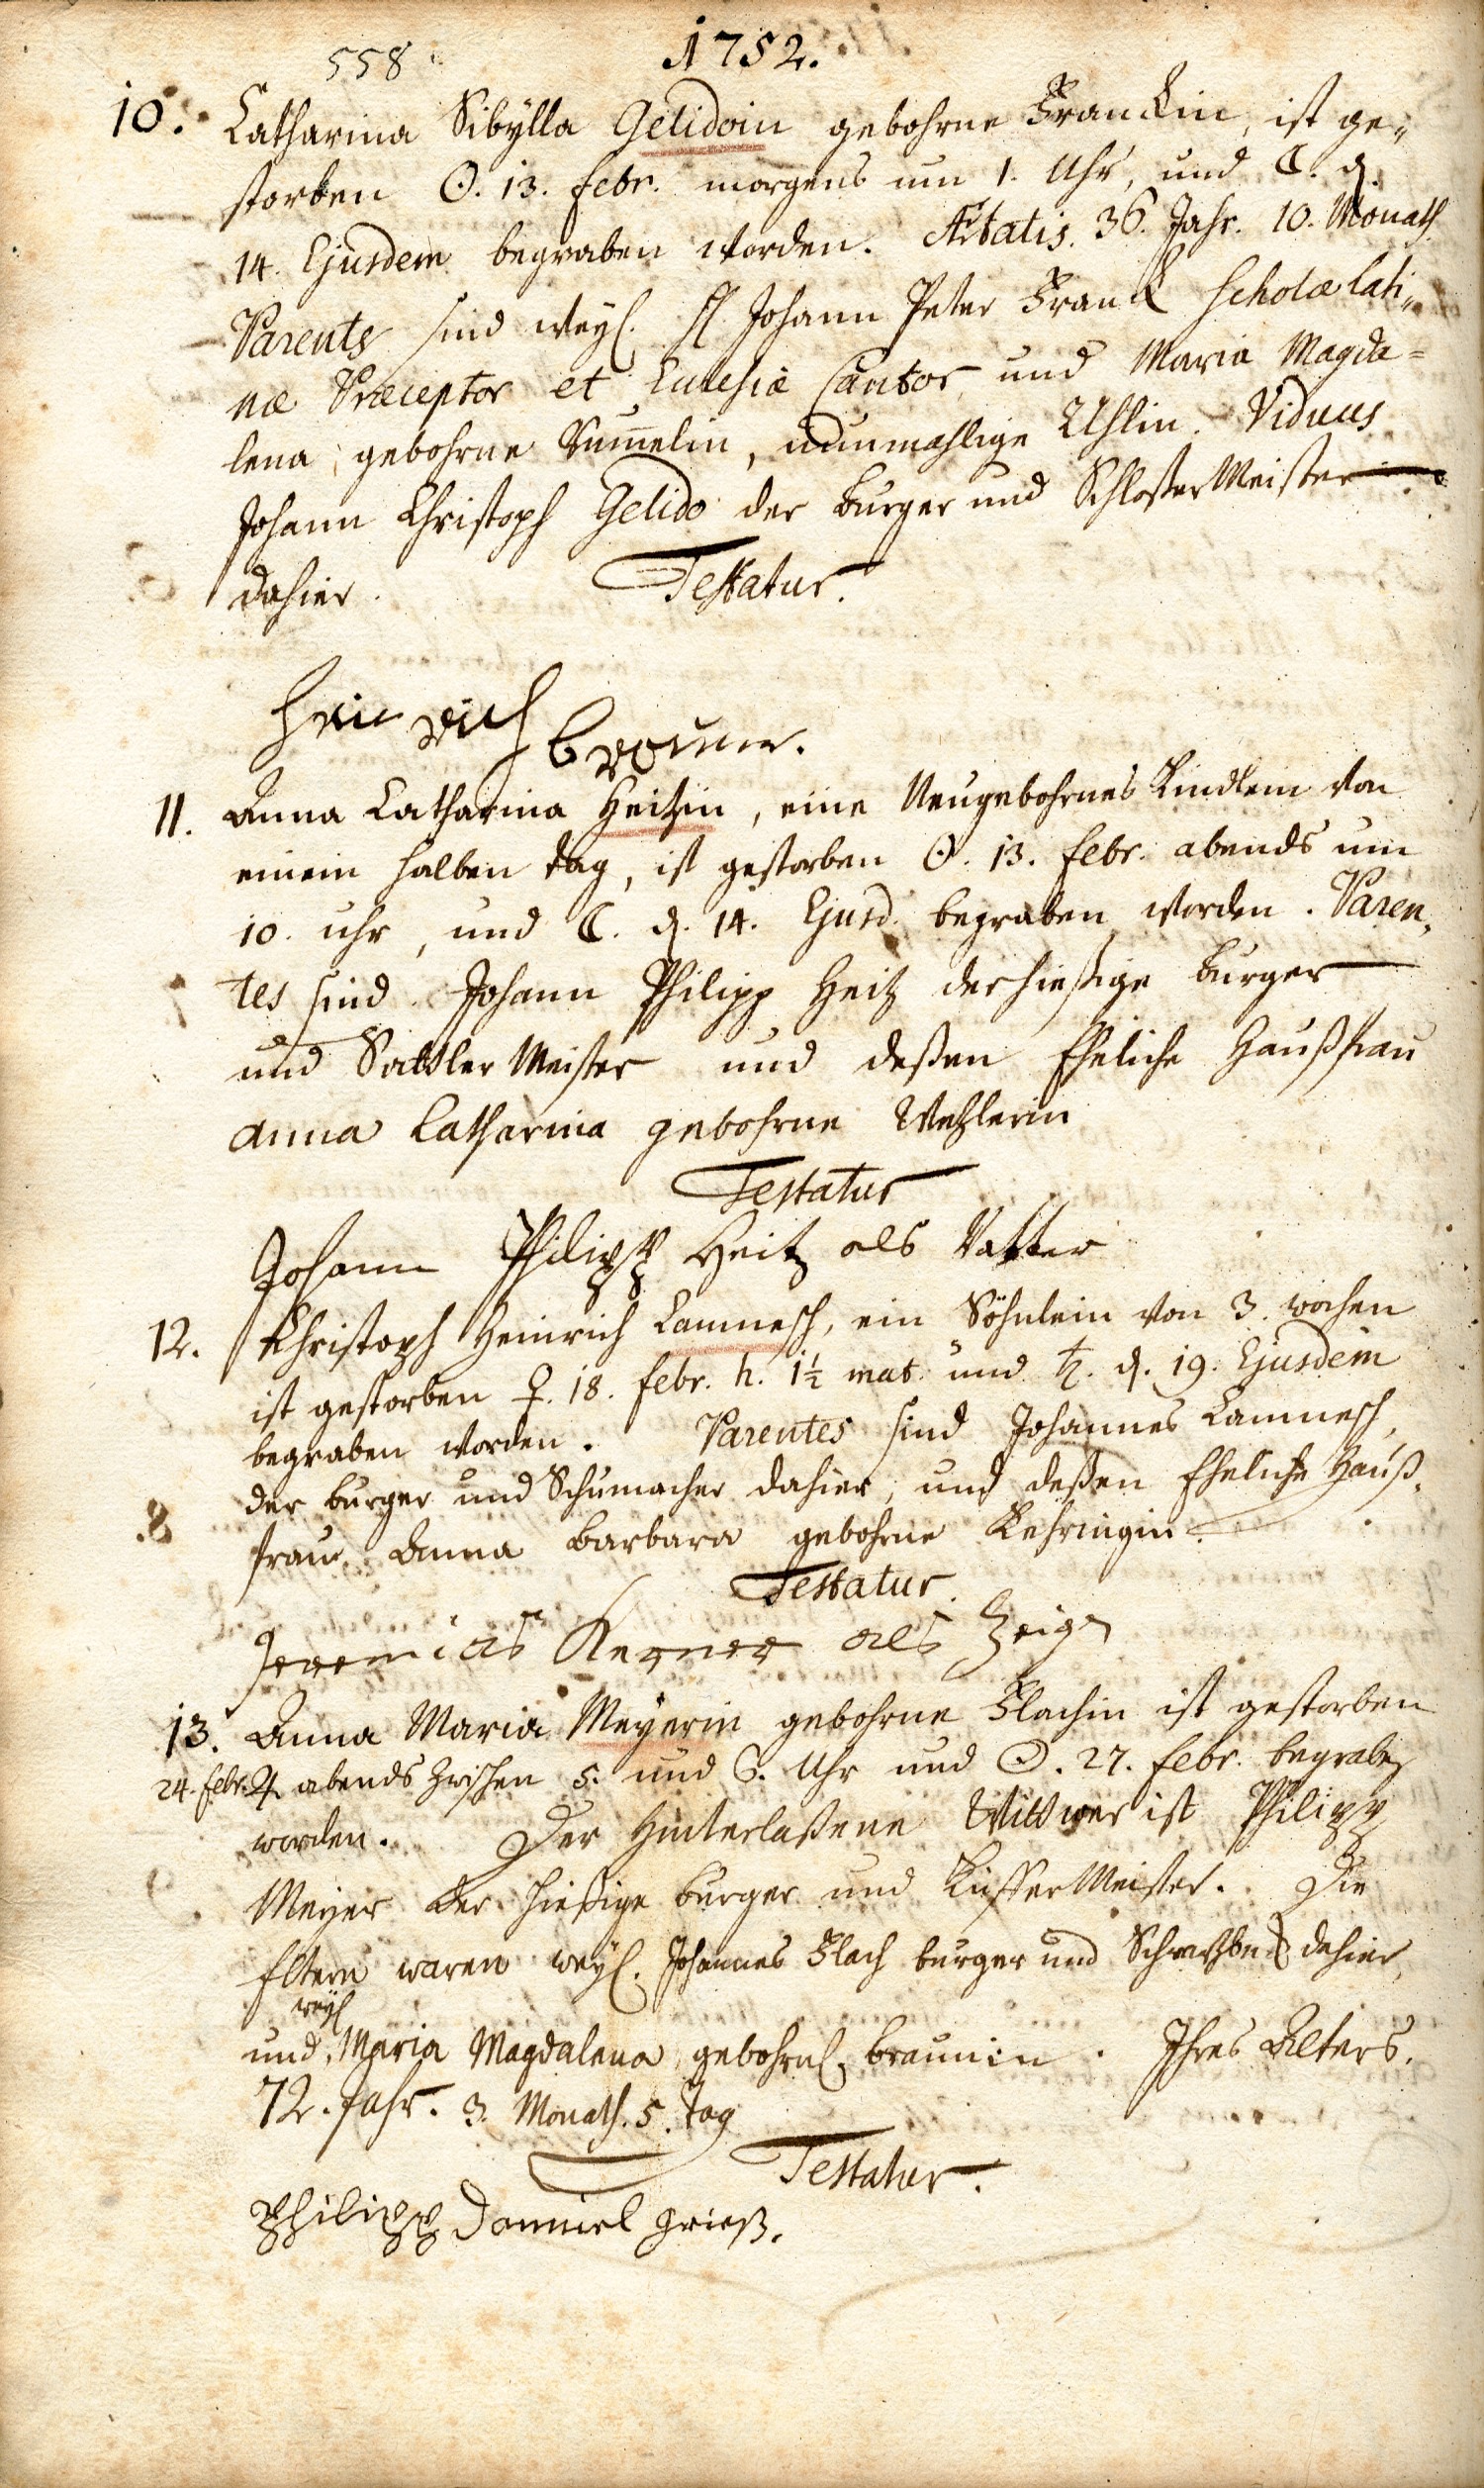 558
1752.
10. Catharina Sibÿlla Gelidoin gebohrne Franckin, ist ge„
storben ☉. 13. febr. morgens um 1. Uhr, und ☾. d.
14. Ejusdem begraben worden. Ætatis. 36. Jahr. 10. Monath.
Parents sind weyl. H Johann Peter Franck scholæ lati„
næ Præceptor et Eccleſiæ Cantor und Maria Magda=
lena, gebohrne Rum̄elin, nunmahlige Uhlin. Viduus
Johann Christoph Gelido der Burger und SchloßerMeister
dahier. Testatur.
Heinrich
Brauner.
11. Anna Catharina Heitzin, eine Neugebohrnes Kindlein von
einem halben Tag, ist gestorben ☉. 13. febr. abends um
10. uhr, und ☾. d. 14. Ejusd. begraben worden. Paren„
tes sind Johann Philipp Heitz der hießige burger
und Sattler Meister und deßen Eheliche Haußfrau
Anna Catharina gebohrne Wetzlerin
Testatur
Johann Philipp Heitz als Vatter
12. Christoph Heinrich Lamnesch, ein Söhnlein von 3. wochen
ist gestorben ♀. 18. febr. h. 1½ mat. und ♄. d. 19. Ejusdem
begraben worden. Parentes sind Johannes Lamnesch,
der burger und Schumacher dahier, und deßen Eheliche Hauß„
frau Anna Barbara gebohrne Kehringin.
Testatur.
Jeremias Kerner als Zeig
13. Anna Maria Meÿerin gebohrne Flachin ist gestorben
24. febr. ♃. abends zwischen 5. und 6. Uhr und ☉. 27. febr. begraben
worden. Der Hinterlaßene Wittwer ist Philipp
Meyer der hießige burger und Küffer Meister. Die
Eltern waren weyl. Johannes Flach burger und dahier,
weyl
und Maria Magdalena gebohrne braunin. Ihres Alters.
72. Jahr. 3. Monath. 5. Tag
Testatur.
Philipp Danniel Grieß.